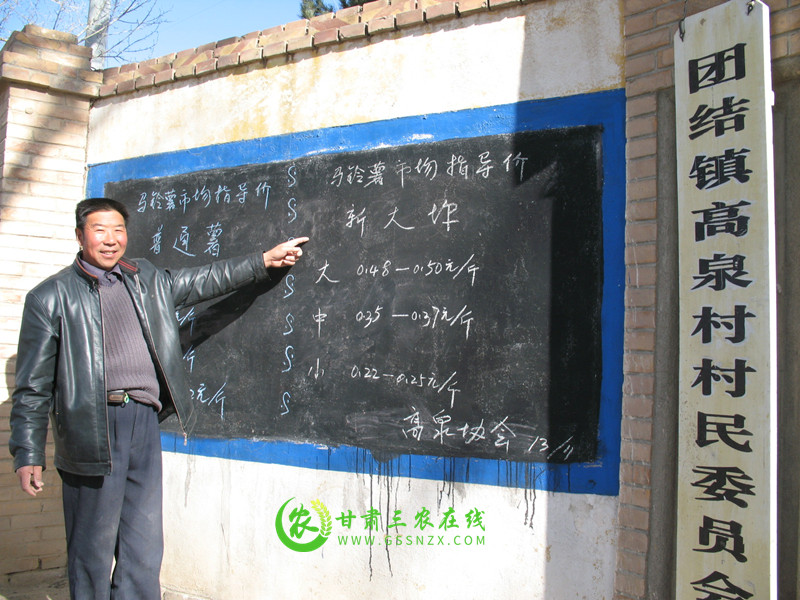 马铃薯市场指导价
普通薯
元/斤
马铃薯市场指导价
新大坪
大 0.48—0.50元/斤
中 0.35—0.37元/斤
小 0.22—0.25元/斤
高泉协会 13/11
团结镇高泉村村民委员会
农 甘肃三农在线
WWW.GSSNZX.COM